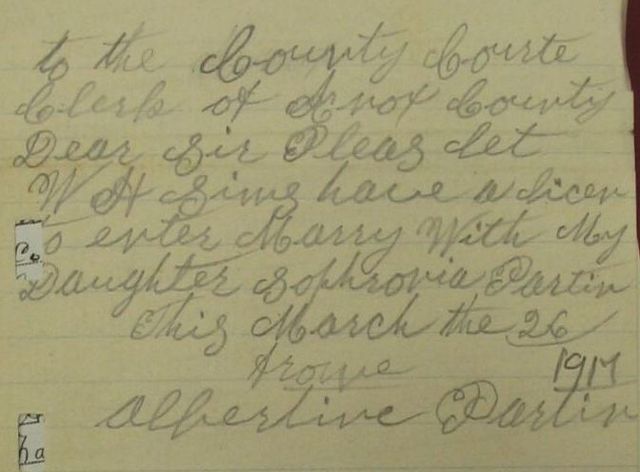 to the County Courte
Clerk of Knox County
Dear Sir Pleas let
W H Sims have a licen
to enter Marry With My
Daughter Sophronia Partin
This March the 26
frome 1917
Albertine Partin